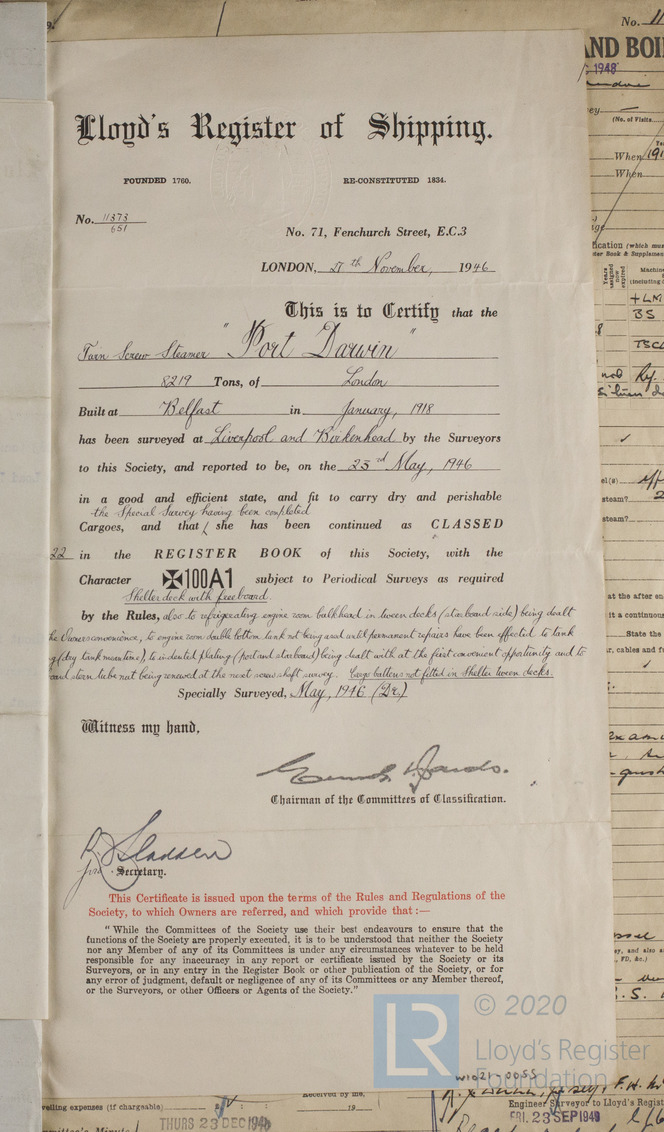 No. 11
AND BOI
1948
(No. of Visits
When 191
When
Lloyd's Register of Shipping.
FOUNDED 1760. RE-CONSTITUTED 1834.
No. 11373
651
No. 71, Fenchurch Street, E.C.3
LONDON, November, 1946
This is to Certify that the
Twin Screw Steamer "Port Darwin"
8219 Tons, of London
Built at Belfast in January, 1918
has been surveyed at Liverpool and Birkenhead by the Surveyors
to this Society, and reported to be, on the 23rd May, 1946
in a good and efficient state, and fit to carry dry and perishable
the Special Survey having been completed
Cargoes, and that she has been continued as CLASSED
22 in the REGISTER BOOK of this Society, with the
Character ✠100A1 subject to Periodical Surveys as required
Shelter deck with freeboard.
by the Rules, also to refrigerating engine room bulkhead in tween decks (starboard side) being dealt
the Owners convenience, to engine room double bottom tank not being used until permanent repairs have been effected to tank
(dry tank meantime), to indented plating (port and starboard) being dealt with at the first convenient opportunity and to
stern tube not being renewed at the next screw shaft survey. Cargo battens not fitted in Shelter tween decks.
Specially Surveyed, May, 1946 (Dr.)
Witness my hand,
Chairman of the Committees of Classification.
R. Sladden
for Secretary.
This Certificate is issued upon the terms of the Rules and Regulations of the
Society, to which Owners are referred, and which provide that :—
" While the Committees of the Society use their best endeavours to ensure that the
functions of the Society are properly executed, it is to be understood that neither the Society
nor any Member of any of its Committees is under any circumstances whatever to be held
responsible for any inaccuracy in any report or certificate issued by the Society or its
Surveyors, or in any entry in the Register Book or other publication of the Society, or for
any error of judgment, default or negligence of any of its Committees or any Member thereof,
or the Surveyors, or other Officers or Agents of the Society."
ication (which mus
ster Book & Supplemen
Years assigned now expired
Machin
(including
+LM
BS
TSC
steam? 2
steam?
at the after en
it a continuous
State the
r, cables and f
LR © 2020
Lloyd's Register
Foundation
W1021-0055
velling expenses (if chargeable)
Received by me,
19
THURS 23 DEC 194
Engineer Surveyor to Lloyd's Regist
FRI. 23 SEP 1949